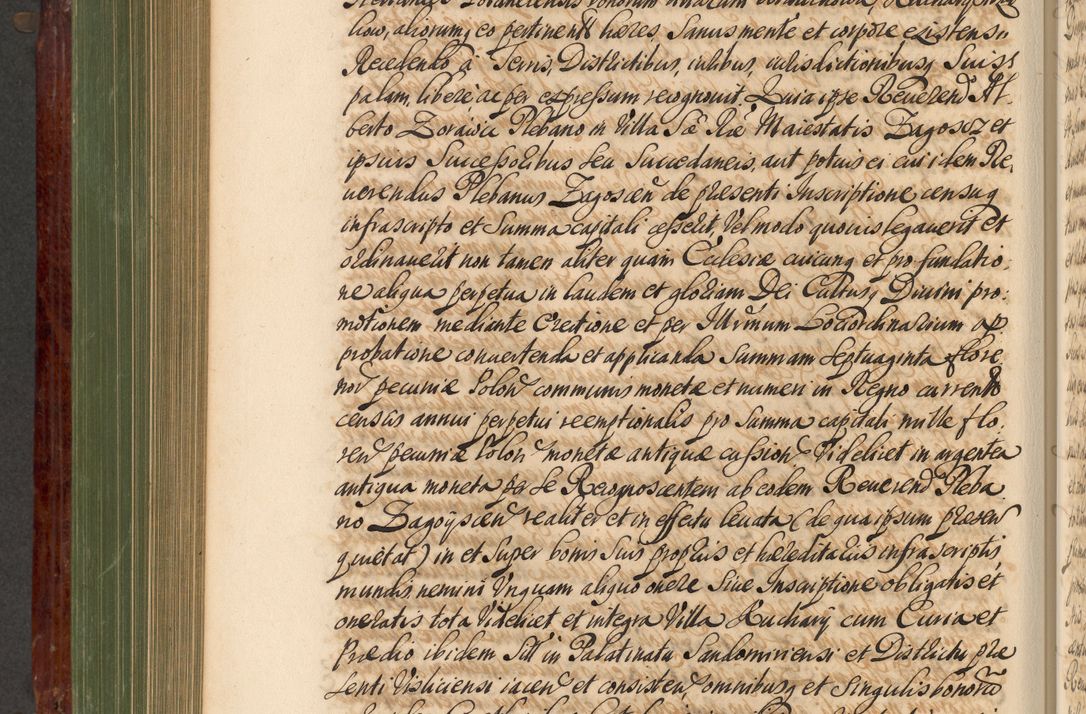 licow, aliorumq eo pertinent hæres, Sanus mente et corpore existens.
Recedendo a Terris, Districtibus, iuribus, iurisdictionibusq Suis
palam, libere ac per expressum recognouit. Quia ipse Reuerend Al-
berto Zorawia Plebano in Villa Sæ Ræ Maiestatis Zagosc et
ipsius Successoribus seu Succedaneis, aut potius ei cui idem Re-
uerendus Plebanus Zagoscen de præsenti Inscriptione censuq
infrascripto et Summa capitali cesserit, Vel modo quouis legauerit et
ordinauerit non tamen aliter quam Eclesiæ cuicunq et pro fundatio-
ne aliqua perpetua in laudem et gloriam Dei Cultusq Diuini pro-
motionem mediante Erectione et per Illrmum Locordinarium ap-
probatione conuertenda et applicanda Summam Septuaginta flore-
nor pecuniæ Polon communis monetæ et numeri in Regno currentis
census annui perpetui reemptionalis pro Summa capitali mille flo-
ren pecuniæ Polon monetæ antiquæ cussion Videlicet in argentea
antiqua moneta per se Recognoscentem ab eodem Reuerend Pleba-
no Zagoÿscen realiter et in effectu leuata (de qua ipsum præsen
quietat) in et Super bonis Suis proprÿs et hæreditarÿs infrascriptis
mundis nemini Vnquam aliquo onere Siue Inscriptione obligatis et
oneratis tota Videlicet et integra Villa Kuchary cum Curia et
Prædio ibidem Sitt in Palatinatu Sandomiriensi et Districtu præ-
senti Visliciensi iacen et consisten omnibusq et Singulis bonoru